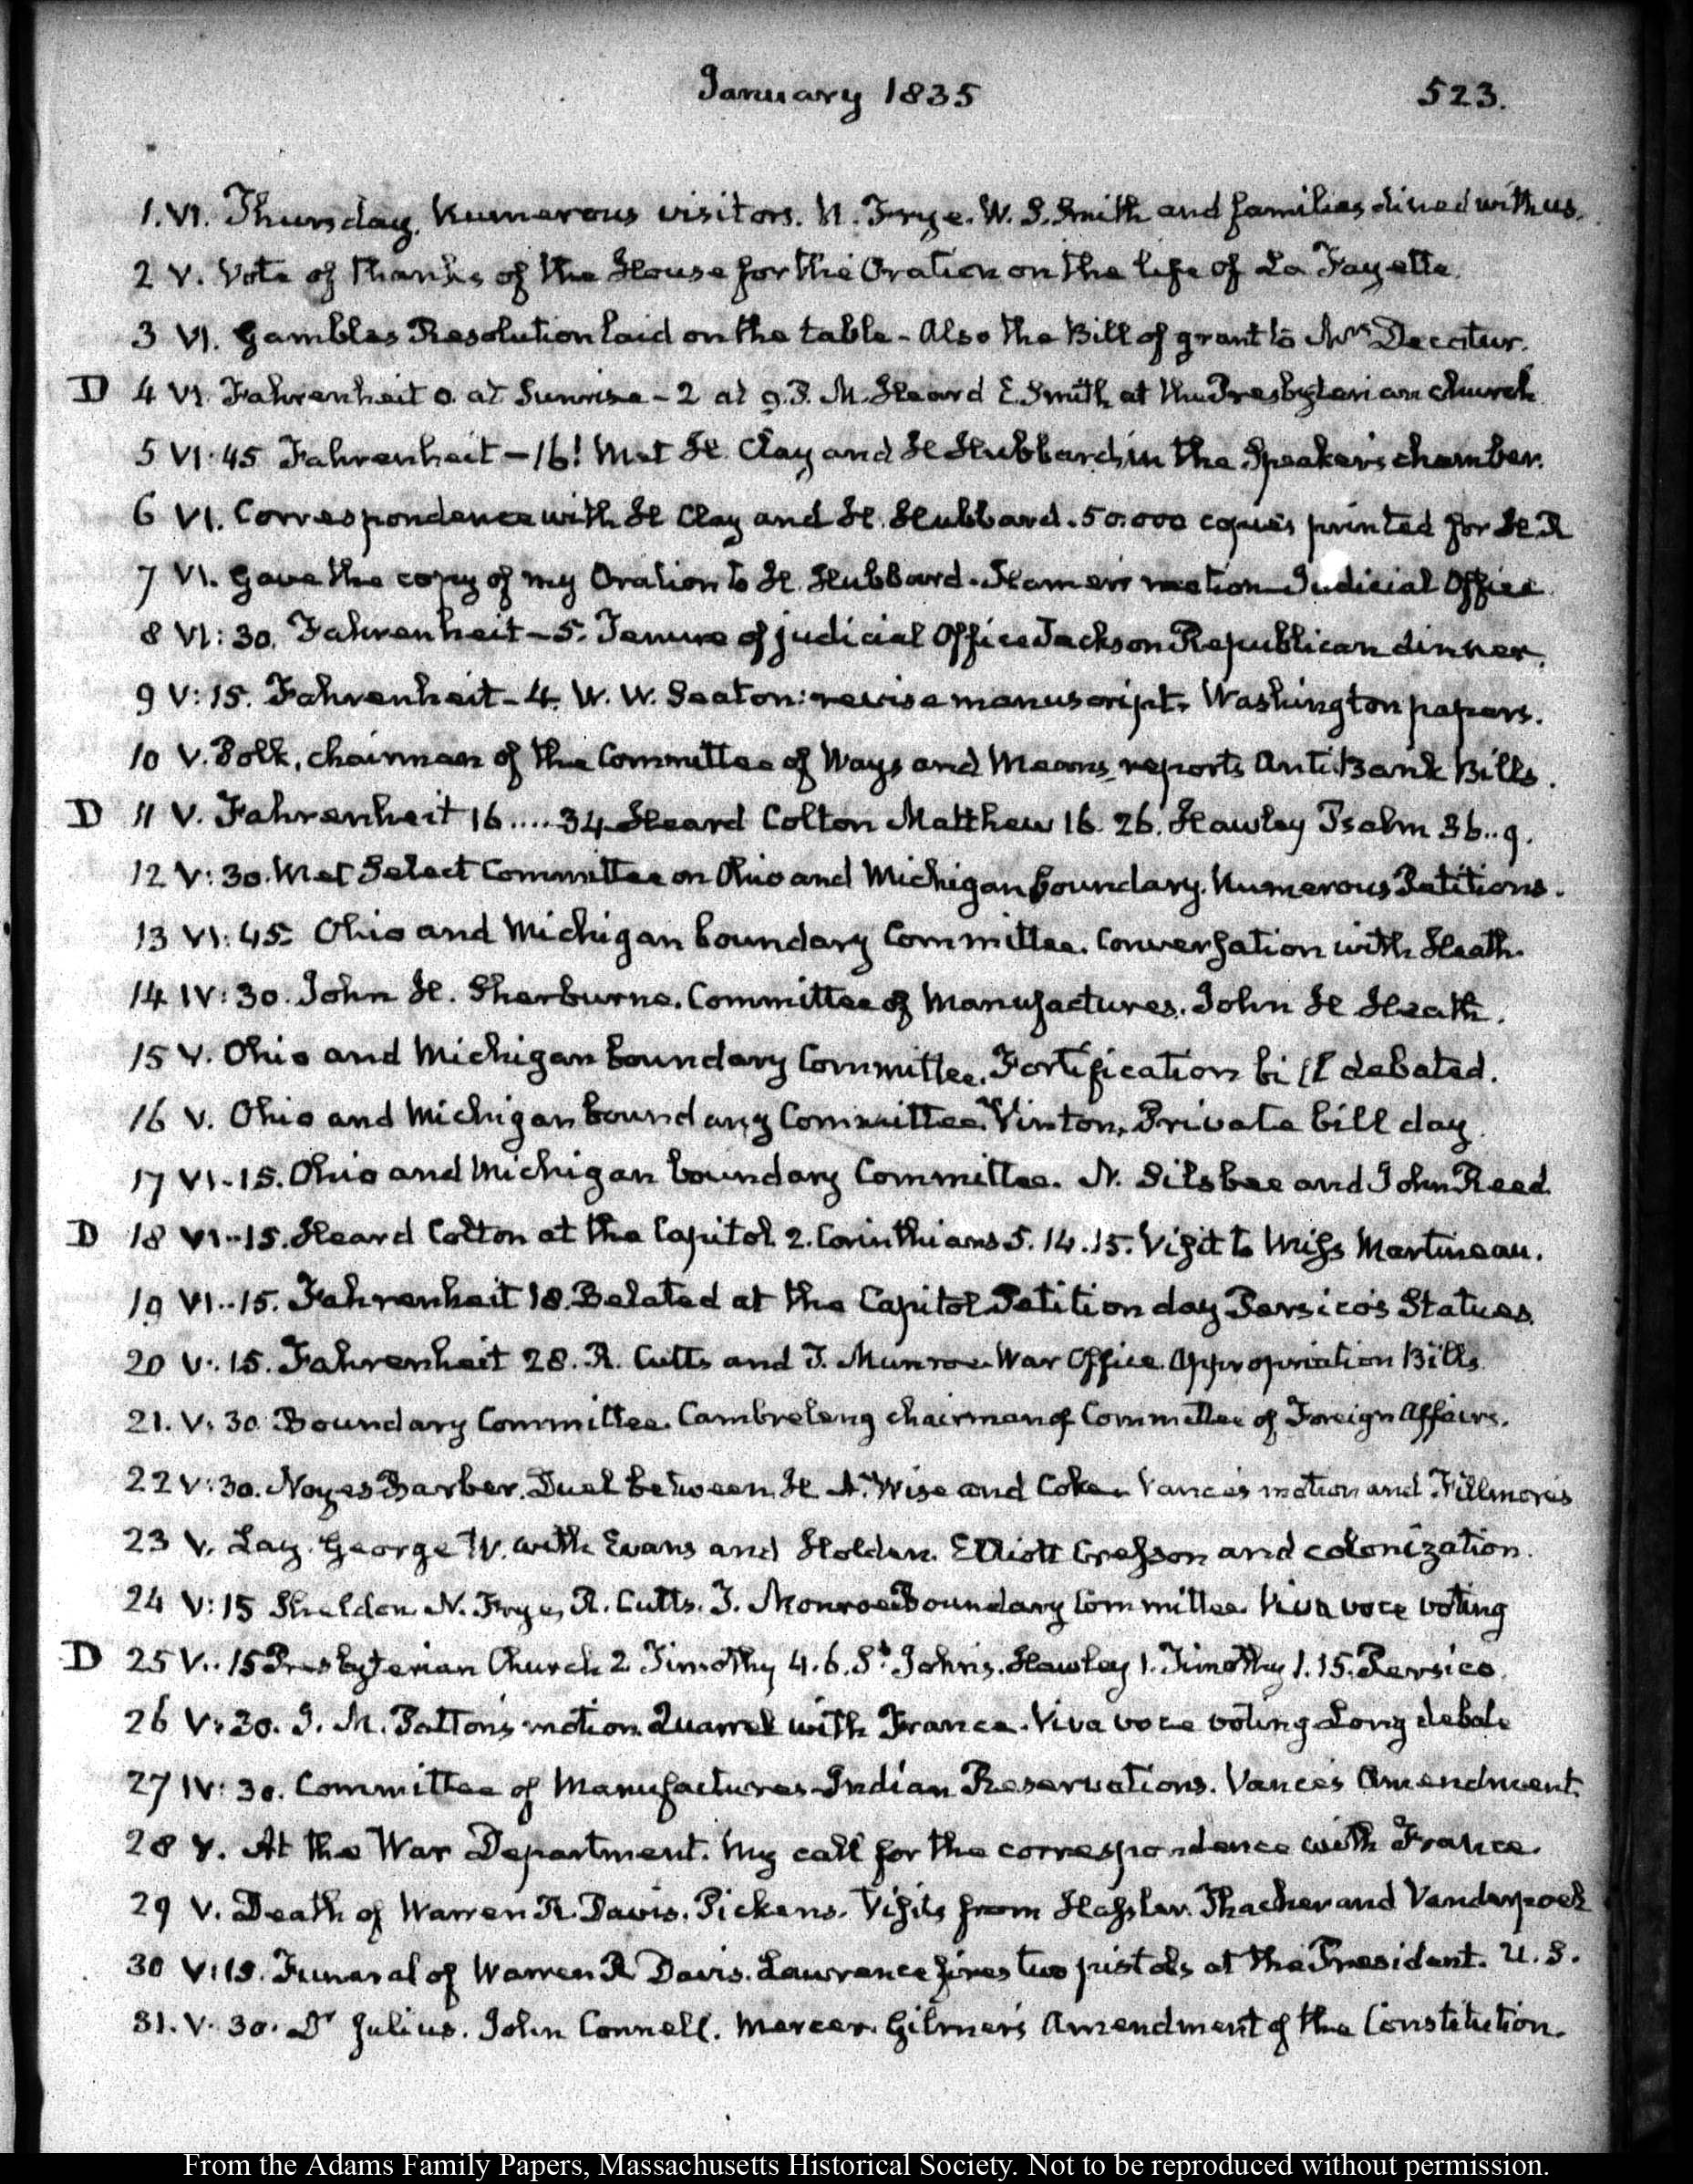 January 1835 523.
1. VI. Thursday. Numerous visitors. N. Frye. W. S. Smith and families dined with us.
2 V. Vote of thanks of the House for the Oration on the life of La Fayette.
3 VI. Gambles Resolution laid on the table - Also the Bill of grant to Mrs Decatur.
D 4 VI. Fahrenheit 0. at Sunrise - 2 at 9. P. M. Heard E. Smith at the Presbyterian church
5 VI:45 Fahrenheit -16! Met H. Clay and H Hubbard, in the Speaker's chamber.
6 VI. Correspondence with H Clay and H. Hubbard. 50.000 copies printed for H. R
7 VI. Gave the copy of my Oration to H. Hubbard. Hamer's motion Judicial Office.
8 VI:30. Fahrenheit -5. Tenure of judicial Office Jackson Republican dinner.
9 V:15. Fahrenheit -4. W. W. Seaton: revise manuscript. Washington papers.
10 V. Polk, chairman of the Committee of Ways and Means, reports Anti Bank Bills.
D 11 V. Fahrenheit 16....34 Heard Colton Matthew 16. 26. Hawley Psalm 36..9.
12 V:30. Met Select Committee on Ohio and Michigan boundary. Numerous Petitions.
13 VI:45. Ohio and Michigan boundary Committee. Conversation with Heath.
14 IV:30. John H. Sherburne. Committee of Manufactures. John H Heath.
15 V. Ohio and Michigan boundary Committee. Fortification bill debated.
16 V. Ohio and Michigan boundary Committee. Vinton. Private bill day.
17 VI-15. Ohio and Michigan boundary Committee. N. Silsbee and John Reed.
D 18 VI-15. Heard Colton at the Capitol 2. Corinthians 5. 14.15. Visit to Miss Martineau.
19 VI..15. Fahrenheit 18. Belated at the Capitol Petition day Persico's Statues.
20 V:15. Fahrenheit 28. R. Cutts and J. Munroe War Office. Appropriation Bills.
21. V:30 Boundary Committee. Cambreleng chairman of Committee of Foreign Affairs.
22 V:30. Noyes Barber. Duel between H A. Wise and Coke. Vance's motion and Fillmore's
23 V. Lay. George W. with Evans and Holden. Elliott Cresson and colonization.
24 V:15 Sheldon. N. Frye, R. Cutts. J. Monroe Boundary Committee. Viva voce voting
D 25 V..15 Presbyterian Church 2 Timothy 4.6. St John's. Hawley 1. Timothy 1.15. Persico.
26 V:30. J. M. Patton's motion. Quarrel with France. Viva voce voting Long debate
27 IV:30. Committee of Manufactures Indian Reservations. Vance's Amendment.
28 V. At the War Department. My call for the correspondence with France.
29 V. Death of Warren R. Davis. Pickens. Visits from Hassler. Thacher and Vanderpoel
30 V:15. Funeral of Warren R Davis. Lawrence fires two pistols at the President. U.S.
31. V:30. Dr Julius. John Connell. Mercer. Gilmer's Amendment of the Constitution.
From the Adams Family Papers, Massachusetts Historical Society. Not to be reproduced without permission.